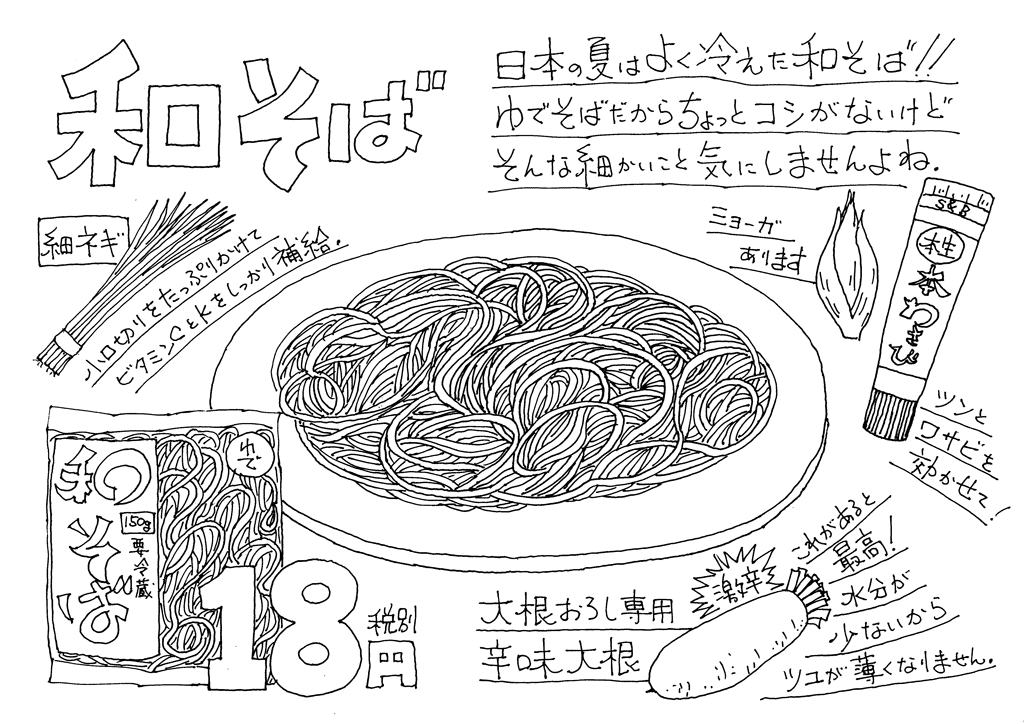 和そば
日本の夏はよく冷えた和そば!!
ゆでそばだからちょっとコシがないけど
そんな細かいこと気にしませんよね.
細ネギ
小口切りをたっぷりかけて
ビタミンCとKをしっかり補給.
ミョーガ
あります
S&B
本生
本わさび
ツンと
ワサビを
効かせて!
和そば
ゆで
150g
要冷蔵
18円
税別
大根おろし専用
辛味大根
激辛
これがあると
最高!
水分が
少ないから
ツユが薄くなりません.